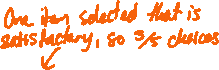 One item selected that is
satisfactory, so 3/5 choices